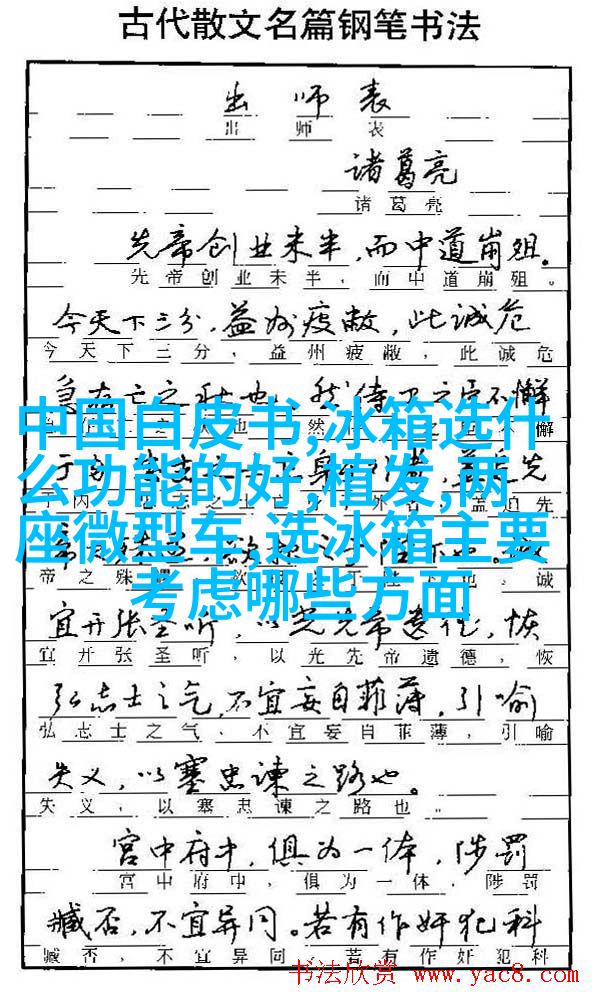 古代散文名篇钢笔书法
出师表
出师表
诸葛亮
诸葛亮
先帝创业未半，而中道崩殂。
先帝创业未半，而中道崩殂。
今天下三分，益州疲敝，此诚危
今天下三分，益州疲敝，此诚危
急存亡之秋也。然侍卫之臣不懈
中国白皮书,冰箱选什
么功能的好,植发,两
座微型车,选冰箱主要
考虑哪些方面
帝之殊 也，诚
宜开张圣听，以光先帝遗德，恢
宜开张圣听，以光先帝遗德，恢
弘志士之气，不宜妄自菲薄，引喻
弘志士之气，不宜妄自菲薄，引喻
失义，以塞忠谏之路也。
失义，以塞忠谏之路也。
宫中府中，俱为一体，陟罚
宫中府中，俱为一体，陟罚
臧否，不宜异同。若有作奸犯科
臧否，不宜异同。若有作奸犯科
书法欣赏 www.yac8.com